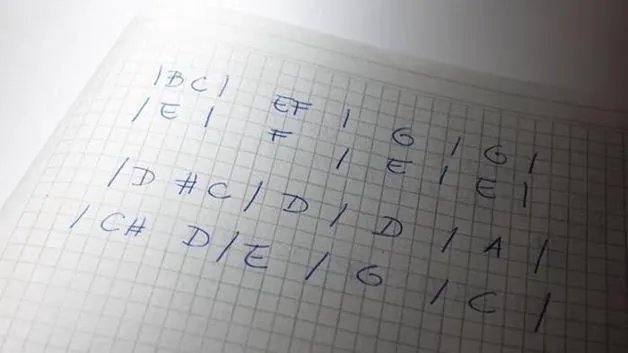 | B C | EF | G | G |
| E | F | E | E |
| D #C | D | D | A |
| C# D | E | G | C |